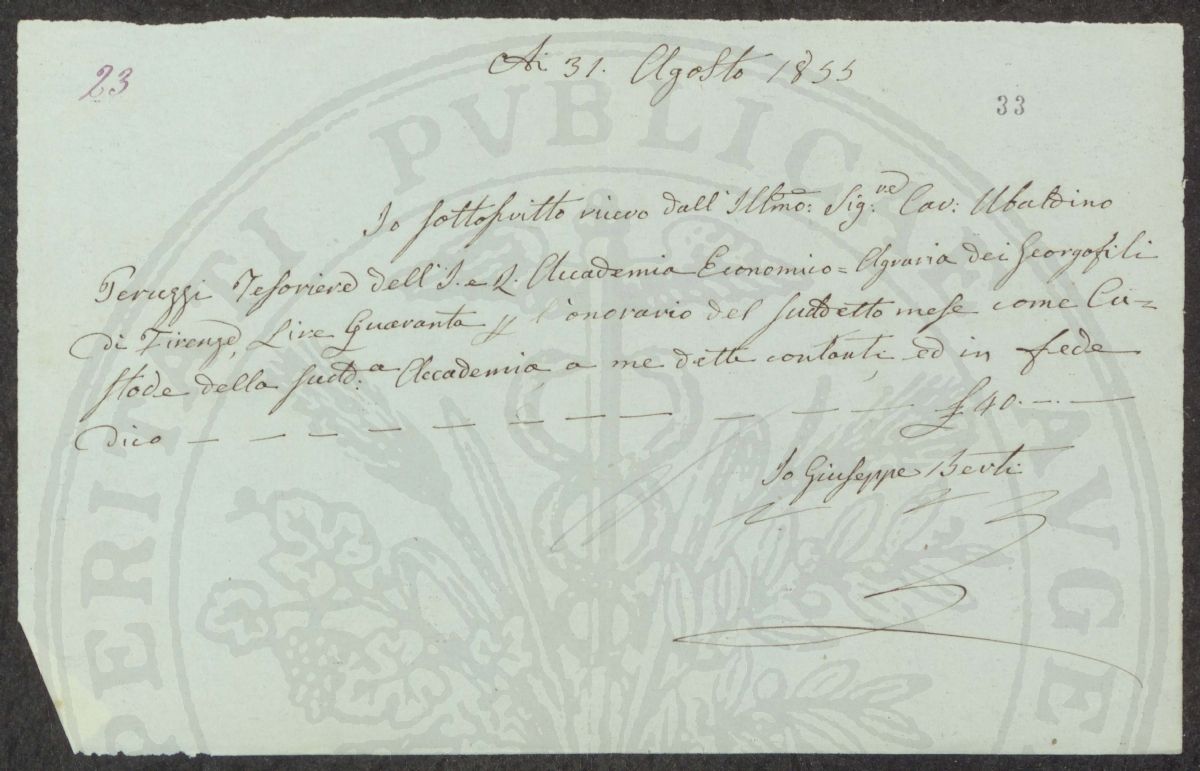 23
Ai 31. Agosto 1855
33
Io sottoscritto ricevo dall'Illmo: Sig.re Cav: Ubaldino
Peruzzi Tesoriere dell'I. e R. Accademia Economico=Agraria dei Georgofili
di Firenze, Lire Quaranta p l'onorario del suddetto mese come Cu=
stode della sudd.a Accademia, a me dette contanti, ed in fede
dico — — — — — — — — — — — — £ 40. — — —
Io Giuseppe Berti
PROSPERITATI PUBLICAE AUGENDAE